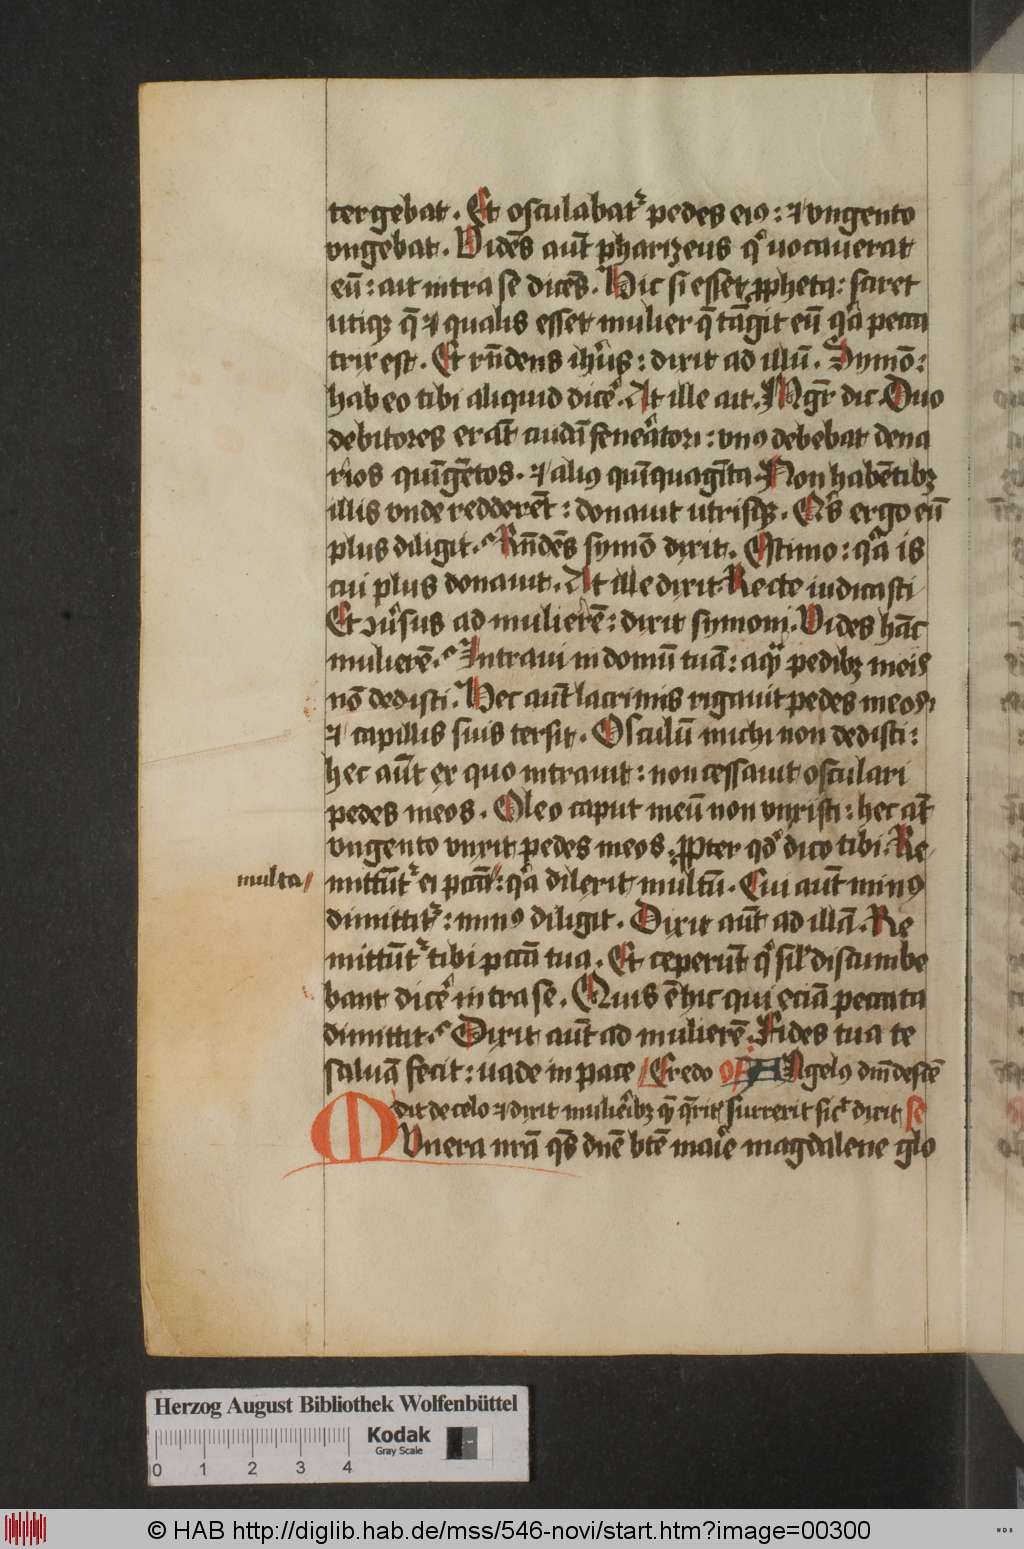 tergebat. Et osculabat᷑ pedes eiꝰ: ⁊ vngento
vngebat. Videͤs aut̄ pharizeus qͥ uocauerat
eū: ait intra se dicēs. Hic si esset ꝓpheta: sciret
utiqꝫ q̄ ⁊ qualis esset mulier q̄ tāgit eū qͥa pecca
trix est. Et rn̄dens ih̓us: dixit ad illū. Symō:
habeo tibi aliquid dic̓e. At ille ait. Mgr̄ dic. Duo
debitores erāt cuidā feneͣtori: vnꝰ debebat dena
rios quīgētos. ⁊ aliꝰ quīquagīta. Non habētibꝫ
illis vnde redderēt: donauit utrisqꝫ. Q̓s ergo eū
plus diligit. Rn̄dēs symō dixit. Estimo: qͥa is
cui plus donauit. At ille dixit. Recte iudicasti
Et ꝯu̓sus ad mulierē: dixit symoni. Vides hāc
mulierē. Intraui in domū tuā: aqͣ pedibꝫ meis
nō dedisti. Hec aut̄ lacrimis rigauit pedes meos
⁊ capillis suis tersit. Osculū michi non dedisti:
hec aūt ex quo intrauit: non cessauit osculari
pedes meos. Oleo caput meū non vnxisti: hec at̄
vngento vnxit pedes meos. ꝓpter qd̓ dico tibi. Re
multa/
mittūt᷑ ei pccā: qͥa dilexit multū. Cui aut̄ minꝰ
dimittit᷑: minꝰ diligit. Dixit aūt ad illā. Re
mittūt᷑ tibi pccā tua. Et ceperūt qͥ sil̓ discumbe
bant dic̓e intra se. Quis ē hic qui eciā peccata
dimittit. Dixit aūt ad mulierē. Fides tua te
saluā fecit: uade in pace Credo of Angelꝰ dn̄i descē
dit de celo ⁊ dixit mulier̓ibꝫ qͣ q̄rit᷑ surrexit sic̓ dixit se
Munera nr̄a qs̄ dn̄e btē maͥe magdalene glo
Herzog August Bibliothek Wolfenbüttel
Kodak
Gray Scale
0 1 2 3 4
© HAB http://diglib.hab.de/mss/546-novi/start.htm?image=00300